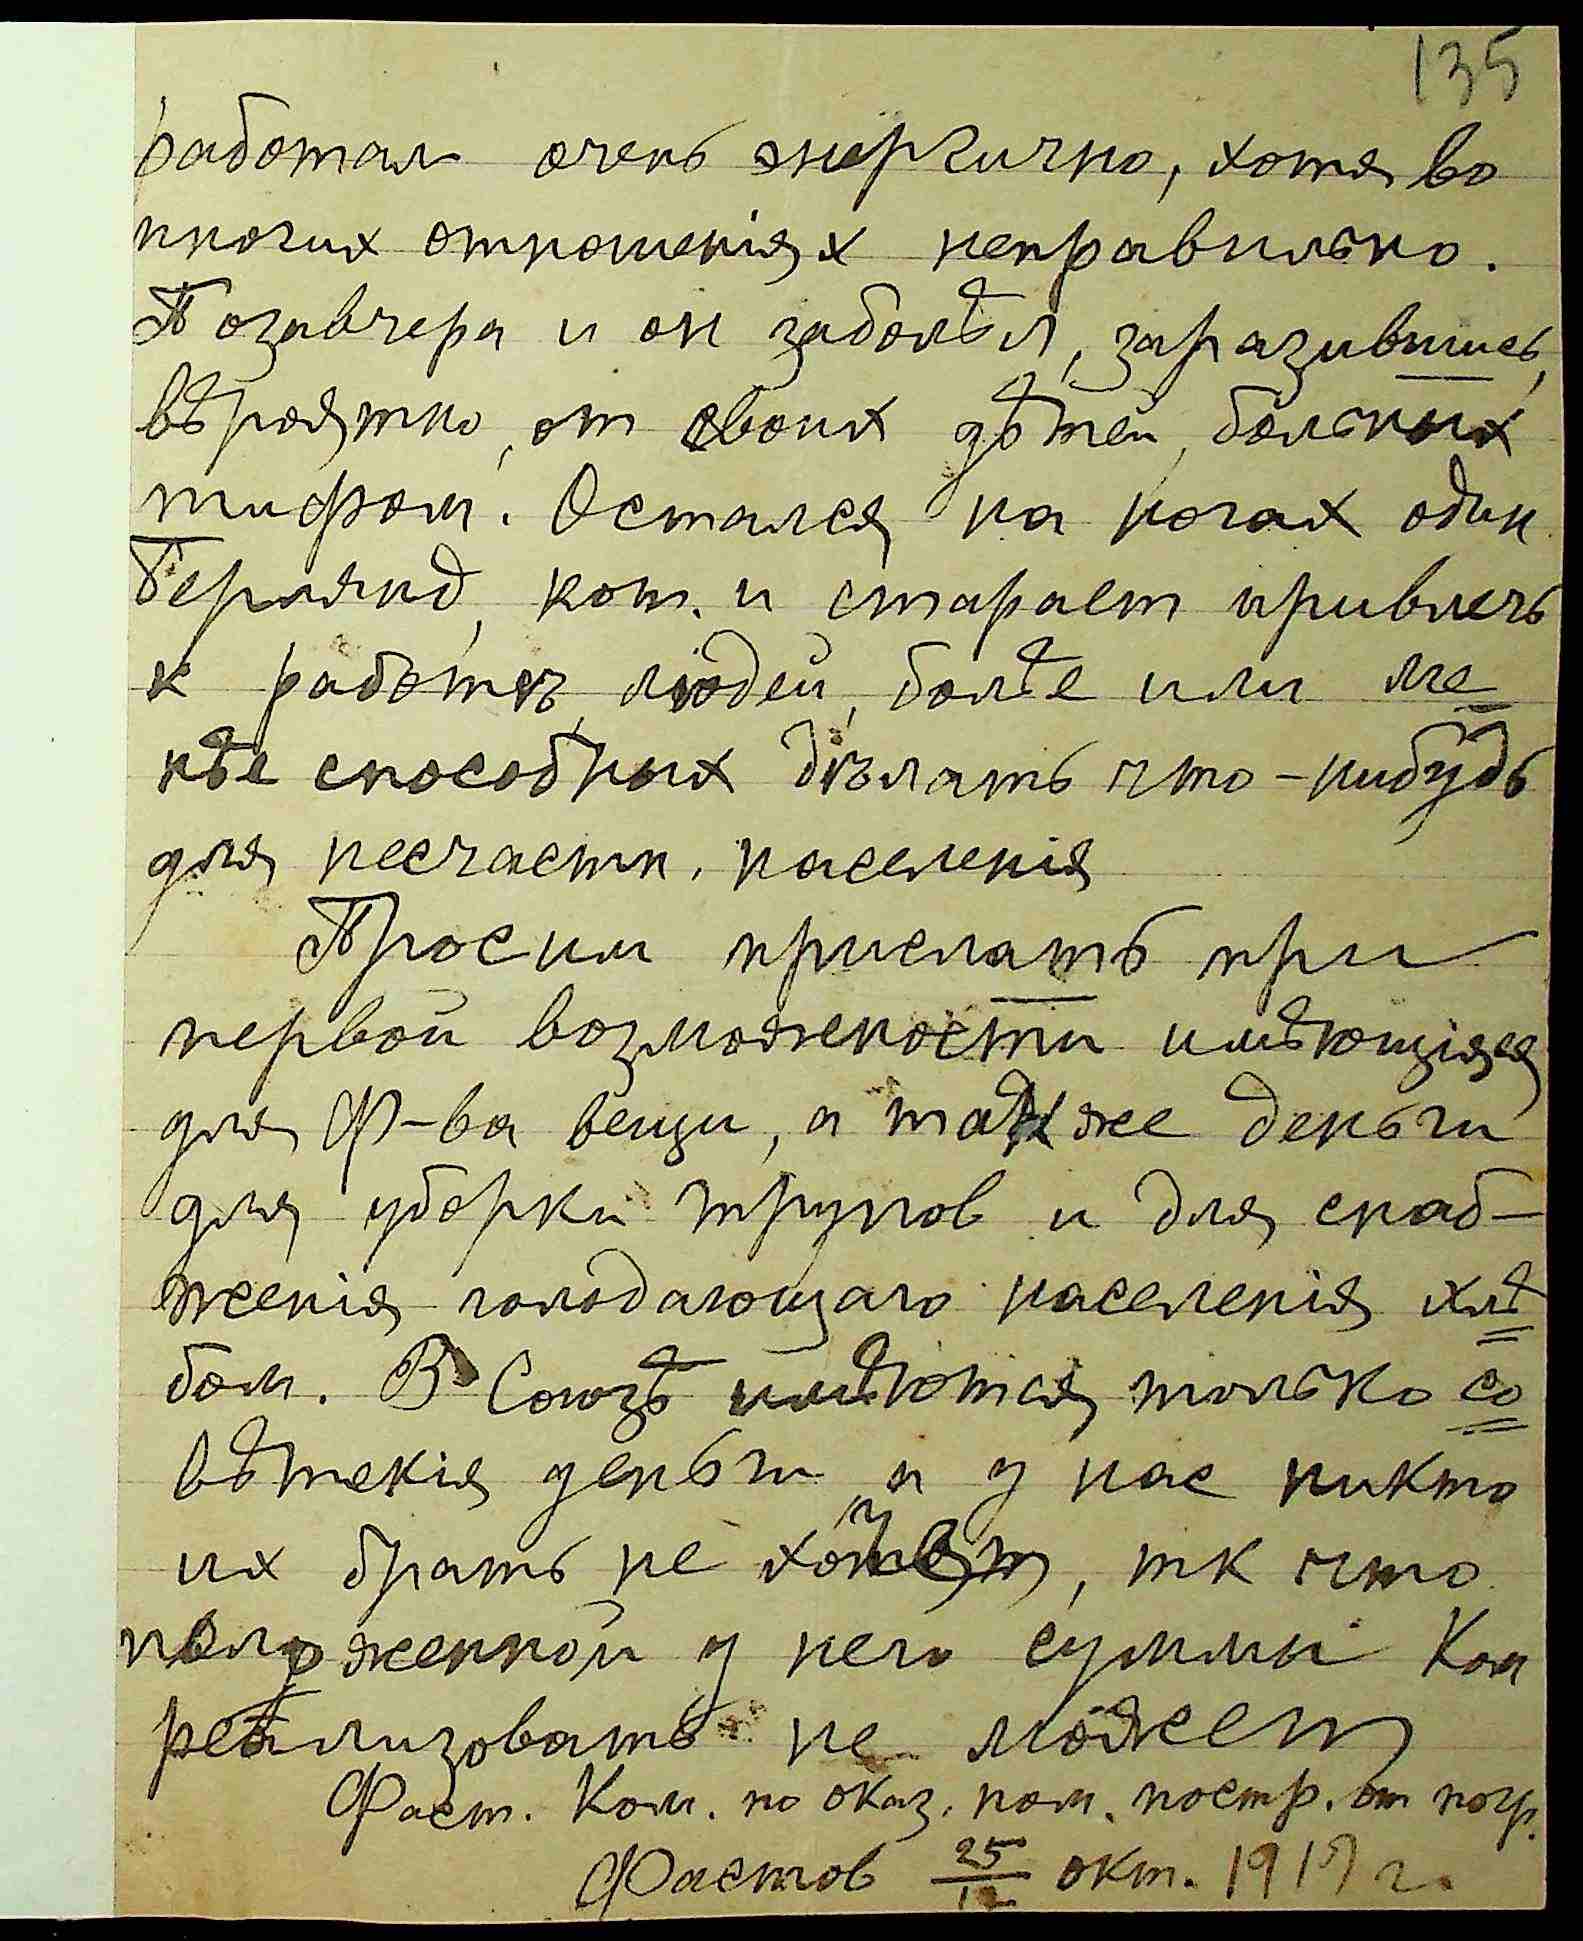 135
работал очень энергично, хотя во
многих отношеніях неправильно.
Позавчера и он заболѣл, заразившись,
вѣроятно, от своих дѣтей, больных
тифом. Остался на ногах один
Берлянд, кот. и старает привлечь
к работѣ людей, болѣе или ме
нѣе способных дѣлать что-нибудь
для несчастн. населенія
Просим прислать при
первой возможености имѣющіяся
для Ф-ва вещи, а также деньги
для уборки трупов и для снаб-
женія голодающаго населенія хлѣ
бом. В Союзѣ имѣются только со
вѣтскія деньги, а у нас никто
их брать не хочет, тк что
положенной у него суммы Ком
реализовать не может
Фаст. Ком. по оказ. пом. постр. от погр.
Фастов 25/12 окт. 1919 г.